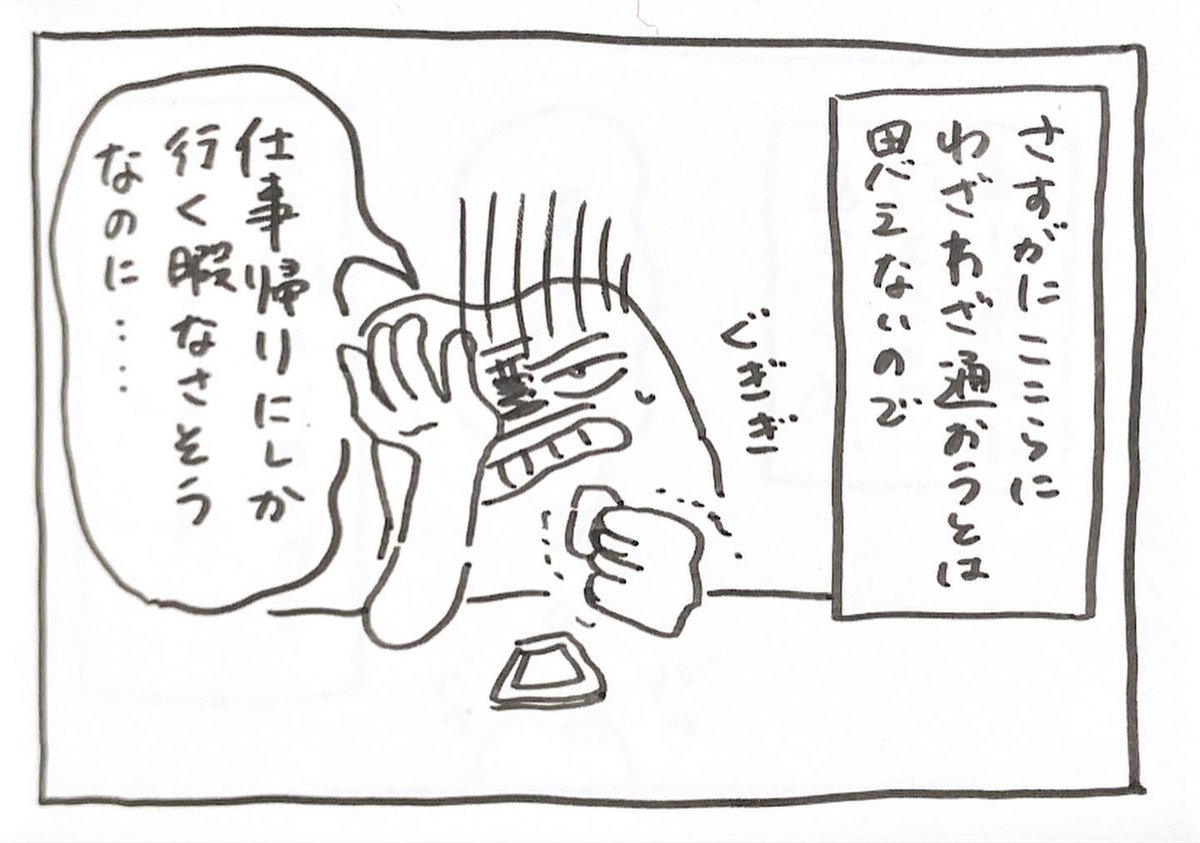 さすがにここらに
わざわざ通おうとは
思えないので
ぐぎぎ
仕事帰りにしか
行く暇なさそう
なのに……